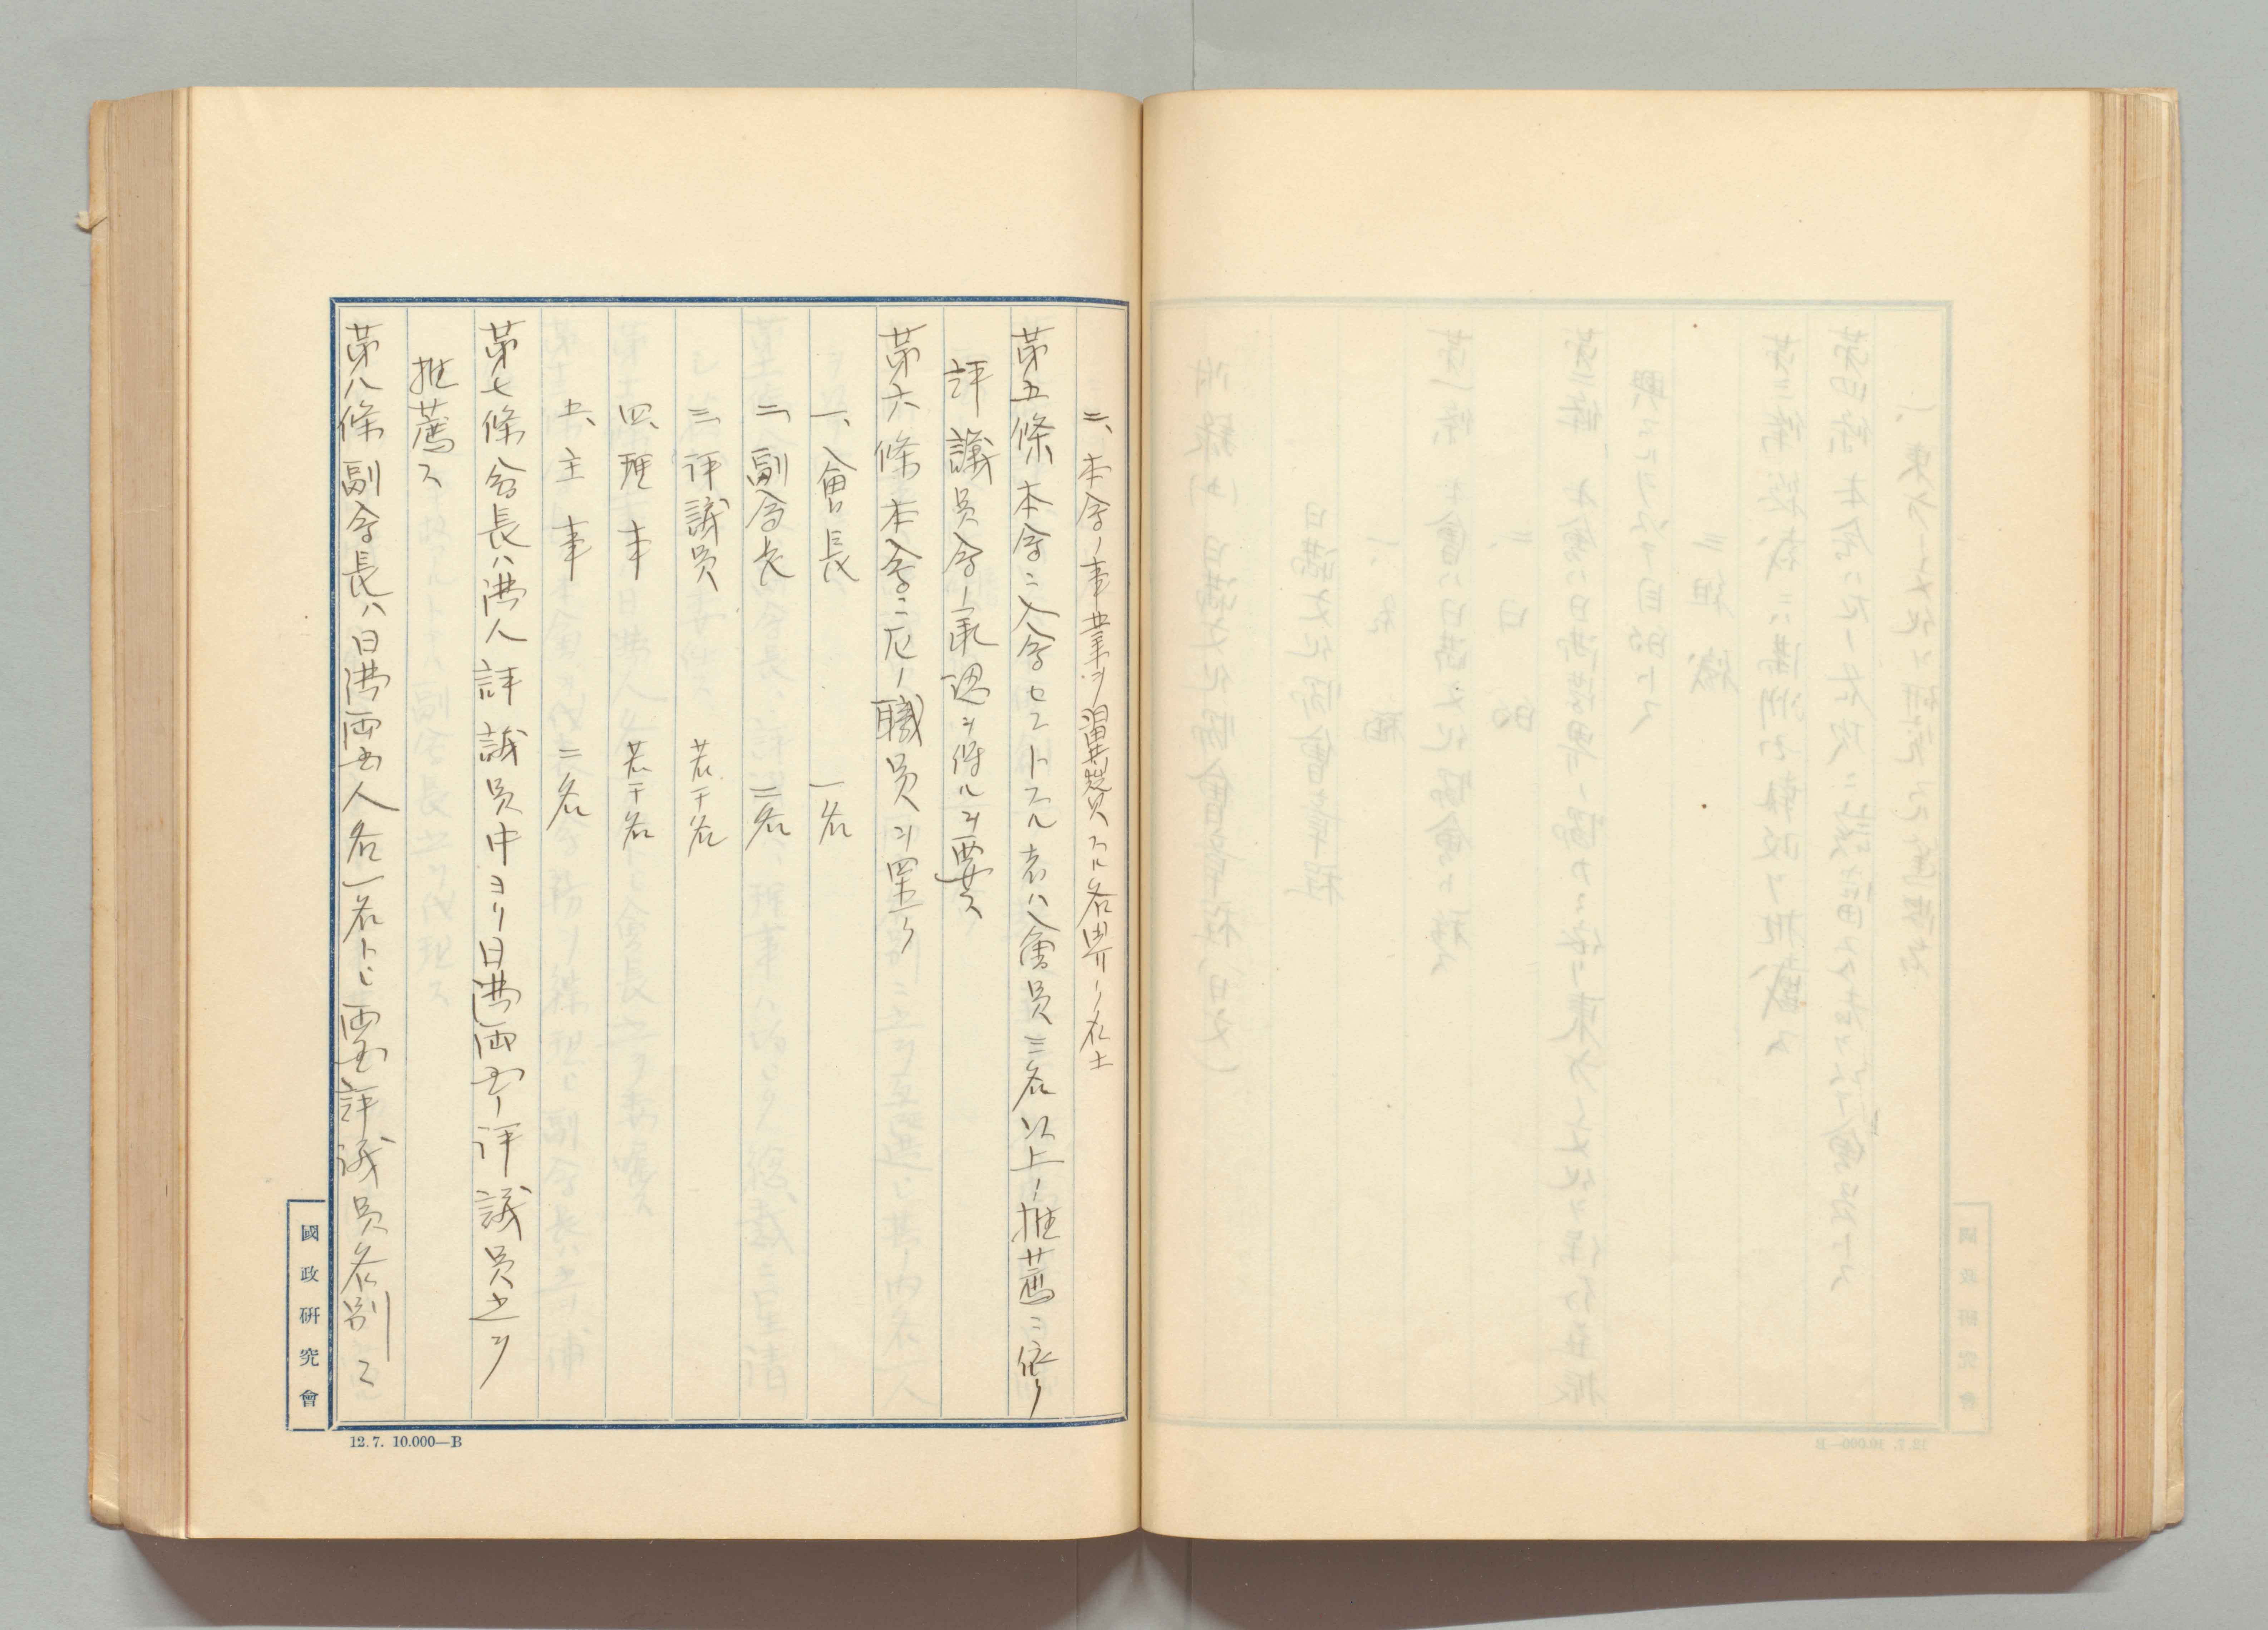 二、本会ノ事業ヲ翼賛スル各界ノ名士
第五條 本会ニ入会セントスル者ハ會員三名以上ノ推薦ニ依リ
評議員会ノ承認ヲ得ルヲ要ス
第六條 本会ニ左ノ職員ヲ置ク
一、會長 一名
二、副会長 二名
三、評議員 若干名
四、理事 若干名
五、主事 二名
第七條 会長ハ満人評議員中ヨリ日満両国ノ評議員之ヲ
推薦ス
第八條 副会長ハ日満両国人各一名トシ両国評議員各別ニ
國政研究會
12.7. 10.000—B